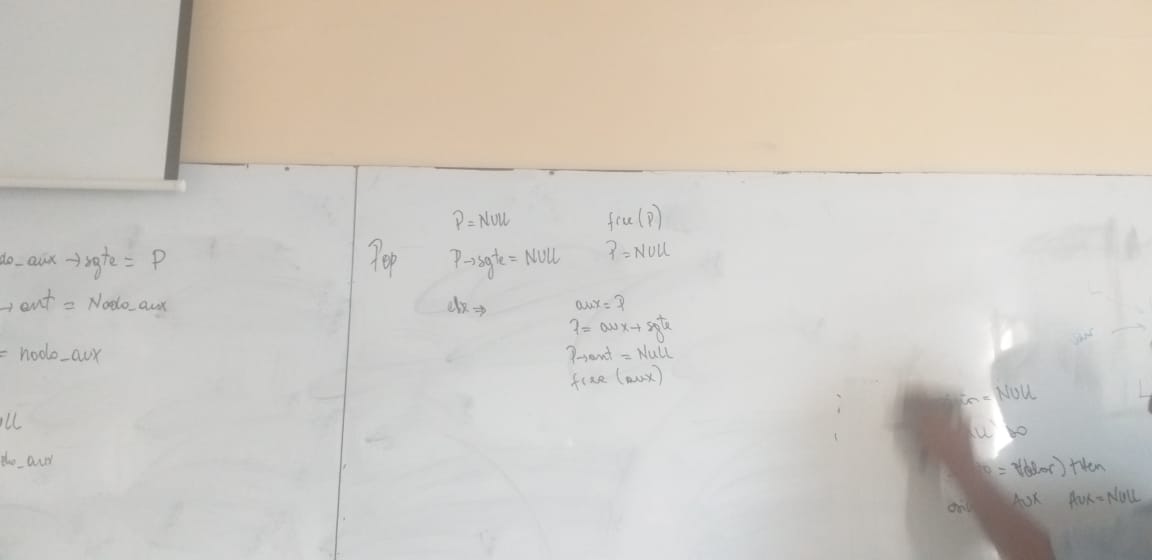 do_aux → sgte = P
→ ant = Nodo_aux
= nodo_aux
ull
do_aux
Pop
P = NULL
free(P)
P→sgte = NULL
P = NULL
else ⇒
aux = P
P = aux → sgte
P→ant = NULL
free (aux)
= NULL
= Valor) then
AUX AUX = NULL